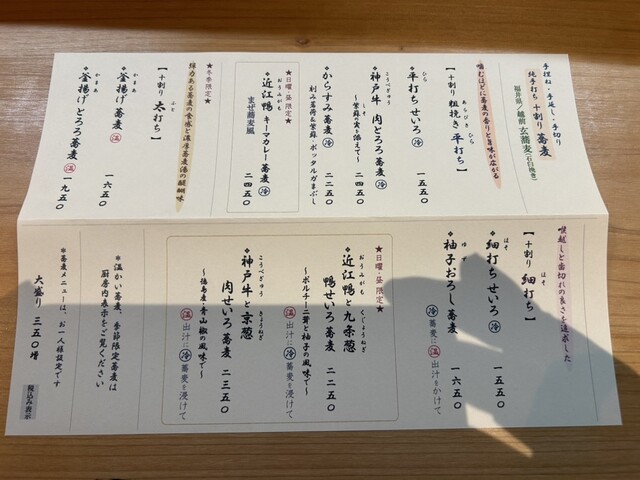 手捏ね・手延し・手切り
純手打ち 十割り蕎麦
福井県／越前 玄蕎麦（石臼挽き）
噛むほどに蕎麦の香りと旨味が広がる
【十割り 粗挽き 平打ち】
あらびき ひら
❖平打ちせいろ 冷 一五五〇
ひら
❖神戸牛 肉とろろ蕎麦 冷 二四五〇
こうべぎゅう
〜紫蘇の実を添えて〜
❖からすみ蕎麦 冷 二二五〇
刻み茗荷＆紫蘇・ボッタルガまぶし
★日曜・昼 限定★
❖近江鴨 キーマカレー蕎麦 冷 二四五〇
おうみがも
まぜ蕎麦風
★冬季限定★
弾力ある蕎麦の食感と濃厚蕎麦湯の醍醐味
【十割り 太打ち】
ふと
❖釜揚げ蕎麦 温 一六五〇
かまあ
❖釜揚げとろろ蕎麦 温 一九五〇
かまあ
喉越しと歯切れの良さを追求した
【十割り 細打ち】
ほそ
❖細打ちせいろ 冷 一五五〇
ほそ
❖柚子おろし蕎麦 一六五〇
ゆず
冷蕎麦に温出汁をかけて
★日曜・昼 限定★
❖近江鴨と九条葱
おうみがも くじょうねぎ
鴨せいろ蕎麦 二二五〇
〜ポルチーニ茸と柚子の風味で〜
温出汁に冷蕎麦を浸けて
❖神戸牛と京葱
こうべぎゅう きょうねぎ
肉せいろ蕎麦 二三五〇
〜徳島産・青山椒の風味で〜
温出汁に冷蕎麦を浸けて
＊温かい蕎麦、季節限定蕎麦は
厨房内表示をご覧ください
＊蕎麦メニューは、お一人様設定です
大盛り 三五〇増
税込み表示